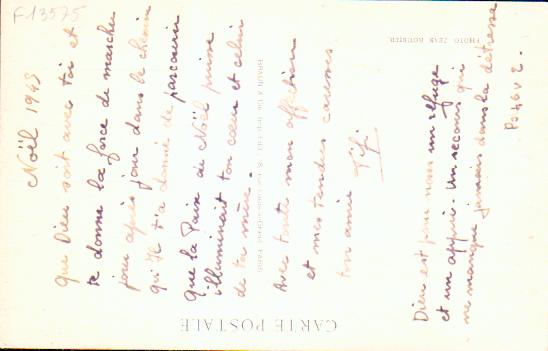 F13575
Noël 1943
que Dieu soit avec toi et
te donne la force de marcher
jour après jour dans le chemin
qu'Il t'a donné de parcourir
que la Paix de Noël puisse
illuminait ton cœur et celui
de ta mère.
Avec toute mon affection
et mes tendres caresses
ton amie
Fifi
Dieu est pour nous un refuge
et un appui. Un secours qui
ne manque jamais dans la détresse
Ps 46 v 2.
PHOTO JEAN ROUBIER
BRAUN & Cie
PARIS
CARTE POSTALE